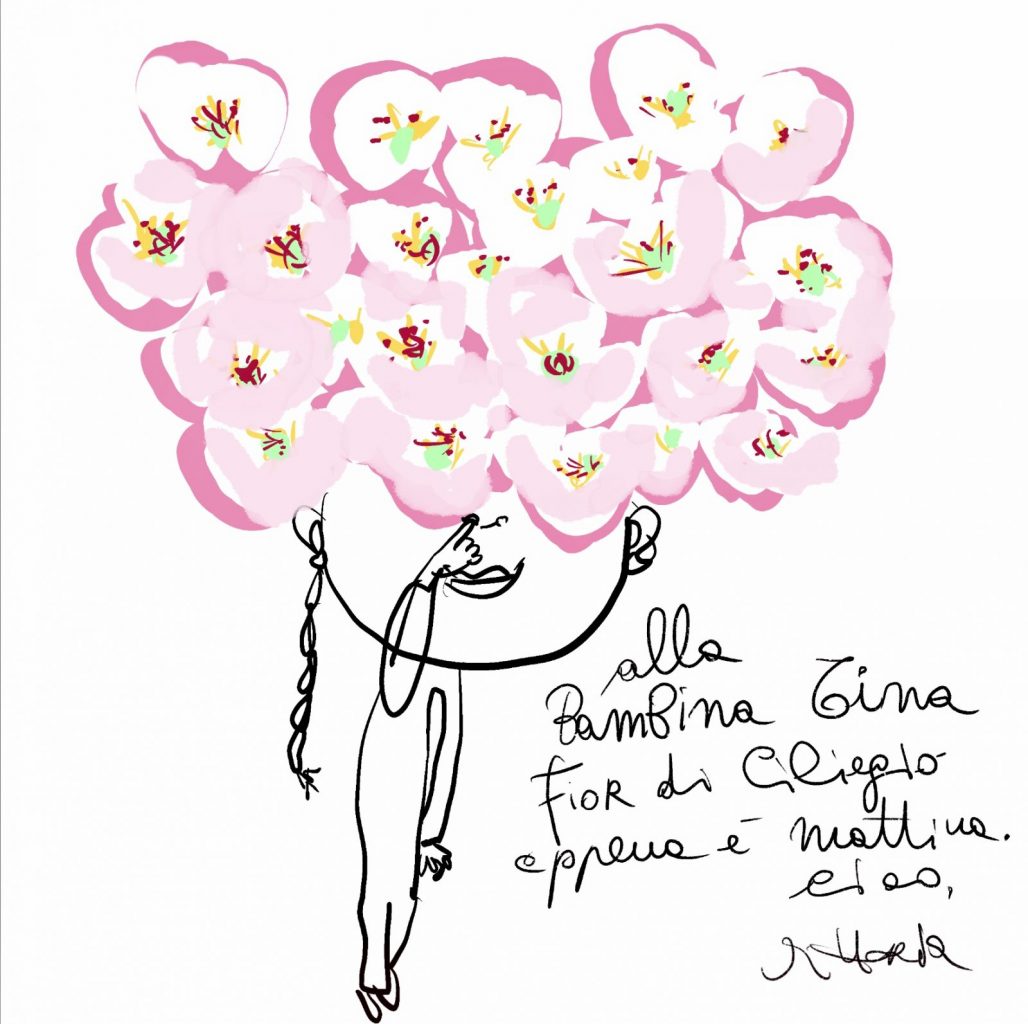 alla
Bambina Tina
Fior di Ciliegio
appena è mattina.
ciao,